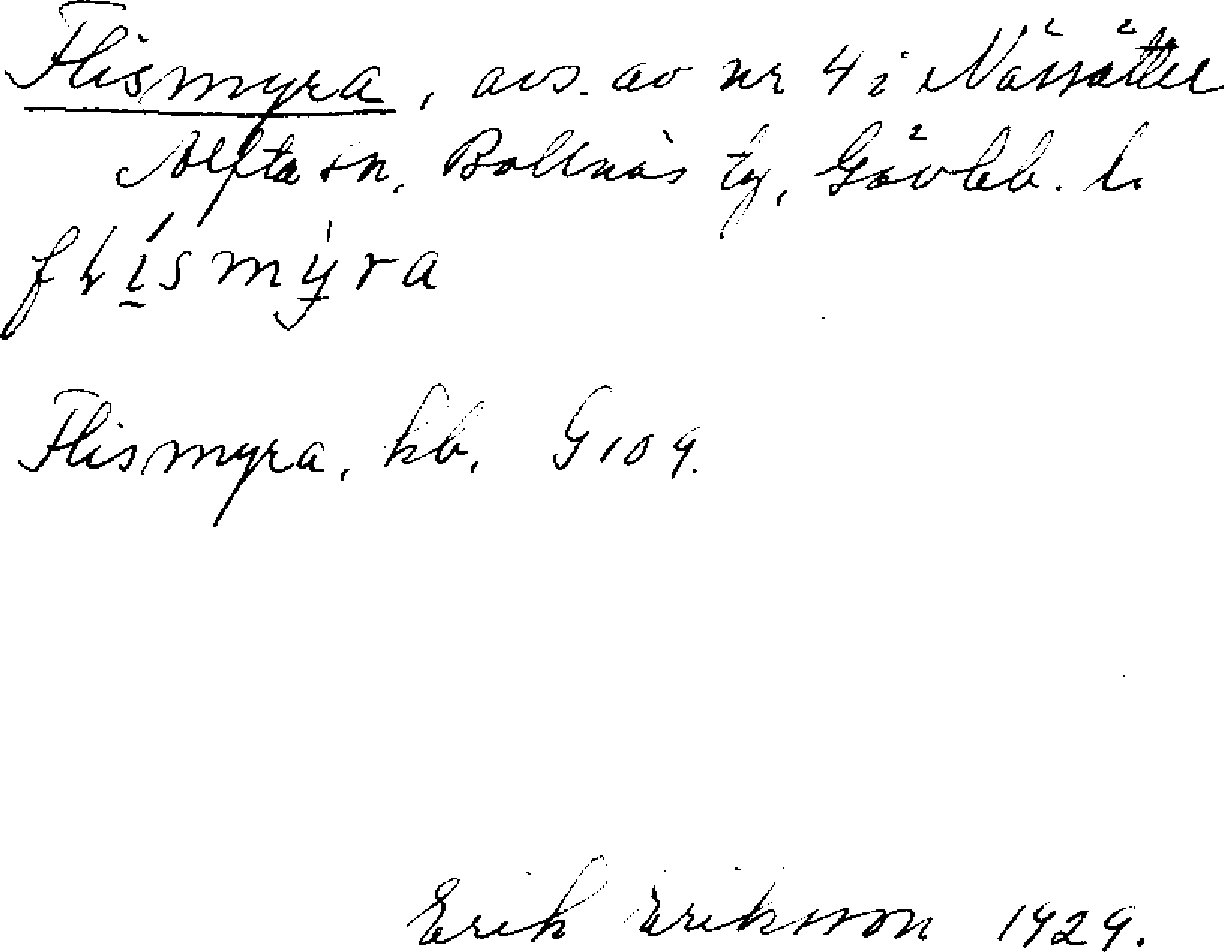 Flismyra, avs. av nr 4 i Nässätter
Alfta sn, Bollnäs tg, Gävleb. l.
flismýra
Flismyra, kb, G 109.
Erik Eriksson 1929.